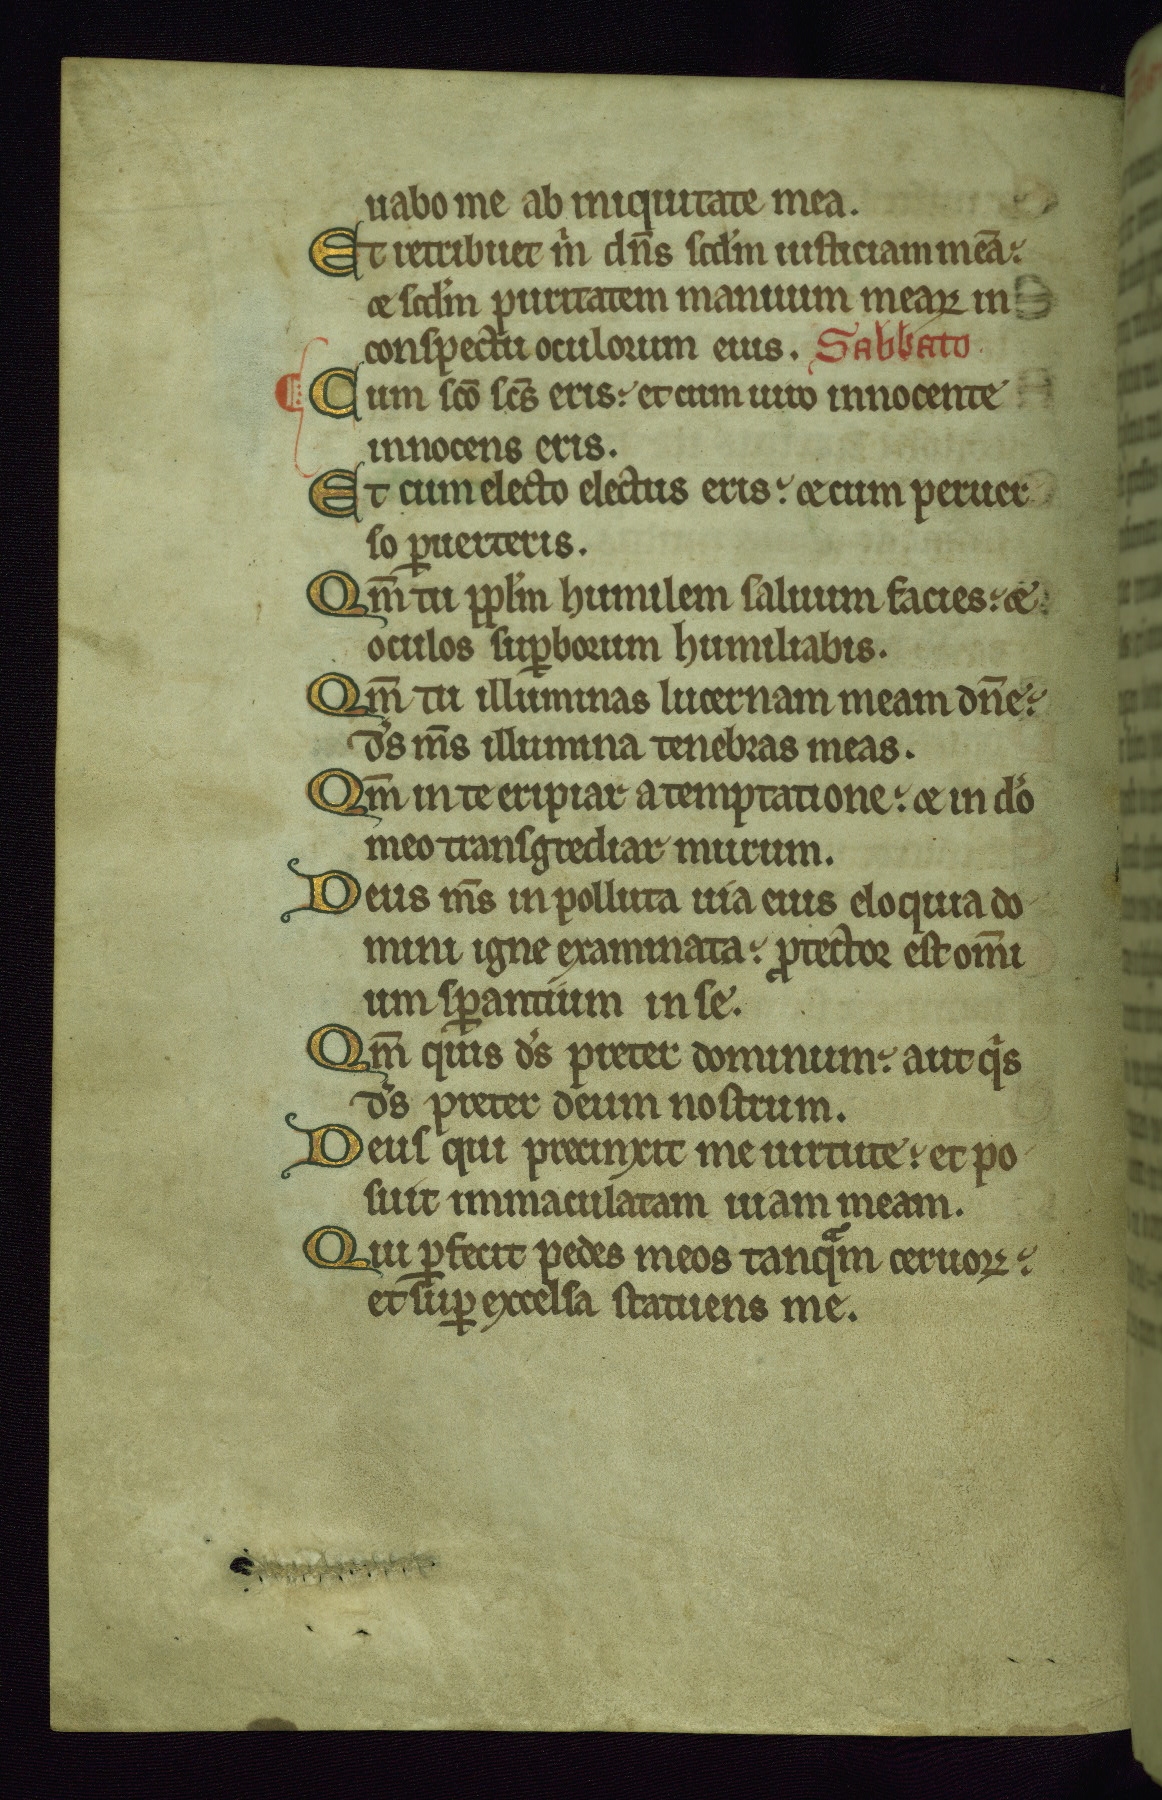 uabo me ab iniquitate mea.
Et retribuet m̄ dn̄s scd̄m iusticiam meā:
⁊ scd̄m puritatem manuum meaꝝ in
conspectu oculorum eius. Sabbato
Cum scō scs̄ eris: et cum uiro innocente
innocens eris.
Et cum electo electus eris: ⁊ cum peruer
so ꝑuerteris.
Qm̄ tu ppl̄m humilem saluum facies: ⁊
oculos suꝑborum humiliabis.
Qm̄ tu illuminas lucernam meam dn̄e:
ds̄ ms̄ illumina tenebras meas.
Qm̄ in te eripiar a temptatione: ⁊ in dō
meo transgrediar murum.
Deus ms̄ in polluta uia eius eloquia do
mini igne examinata: ꝓtector est omī
um sꝑantium in se.
Qm̄ quis ds̄ preter dominum: aut qis
ds̄ preter deum nostrum.
Deus qui precinxit me uirtute: et po
suit immaculatam uiam meam.
Qui ꝑfecit pedes meos tanqᵃm ceruoꝝ:
et suꝑ excelsa statuens me.